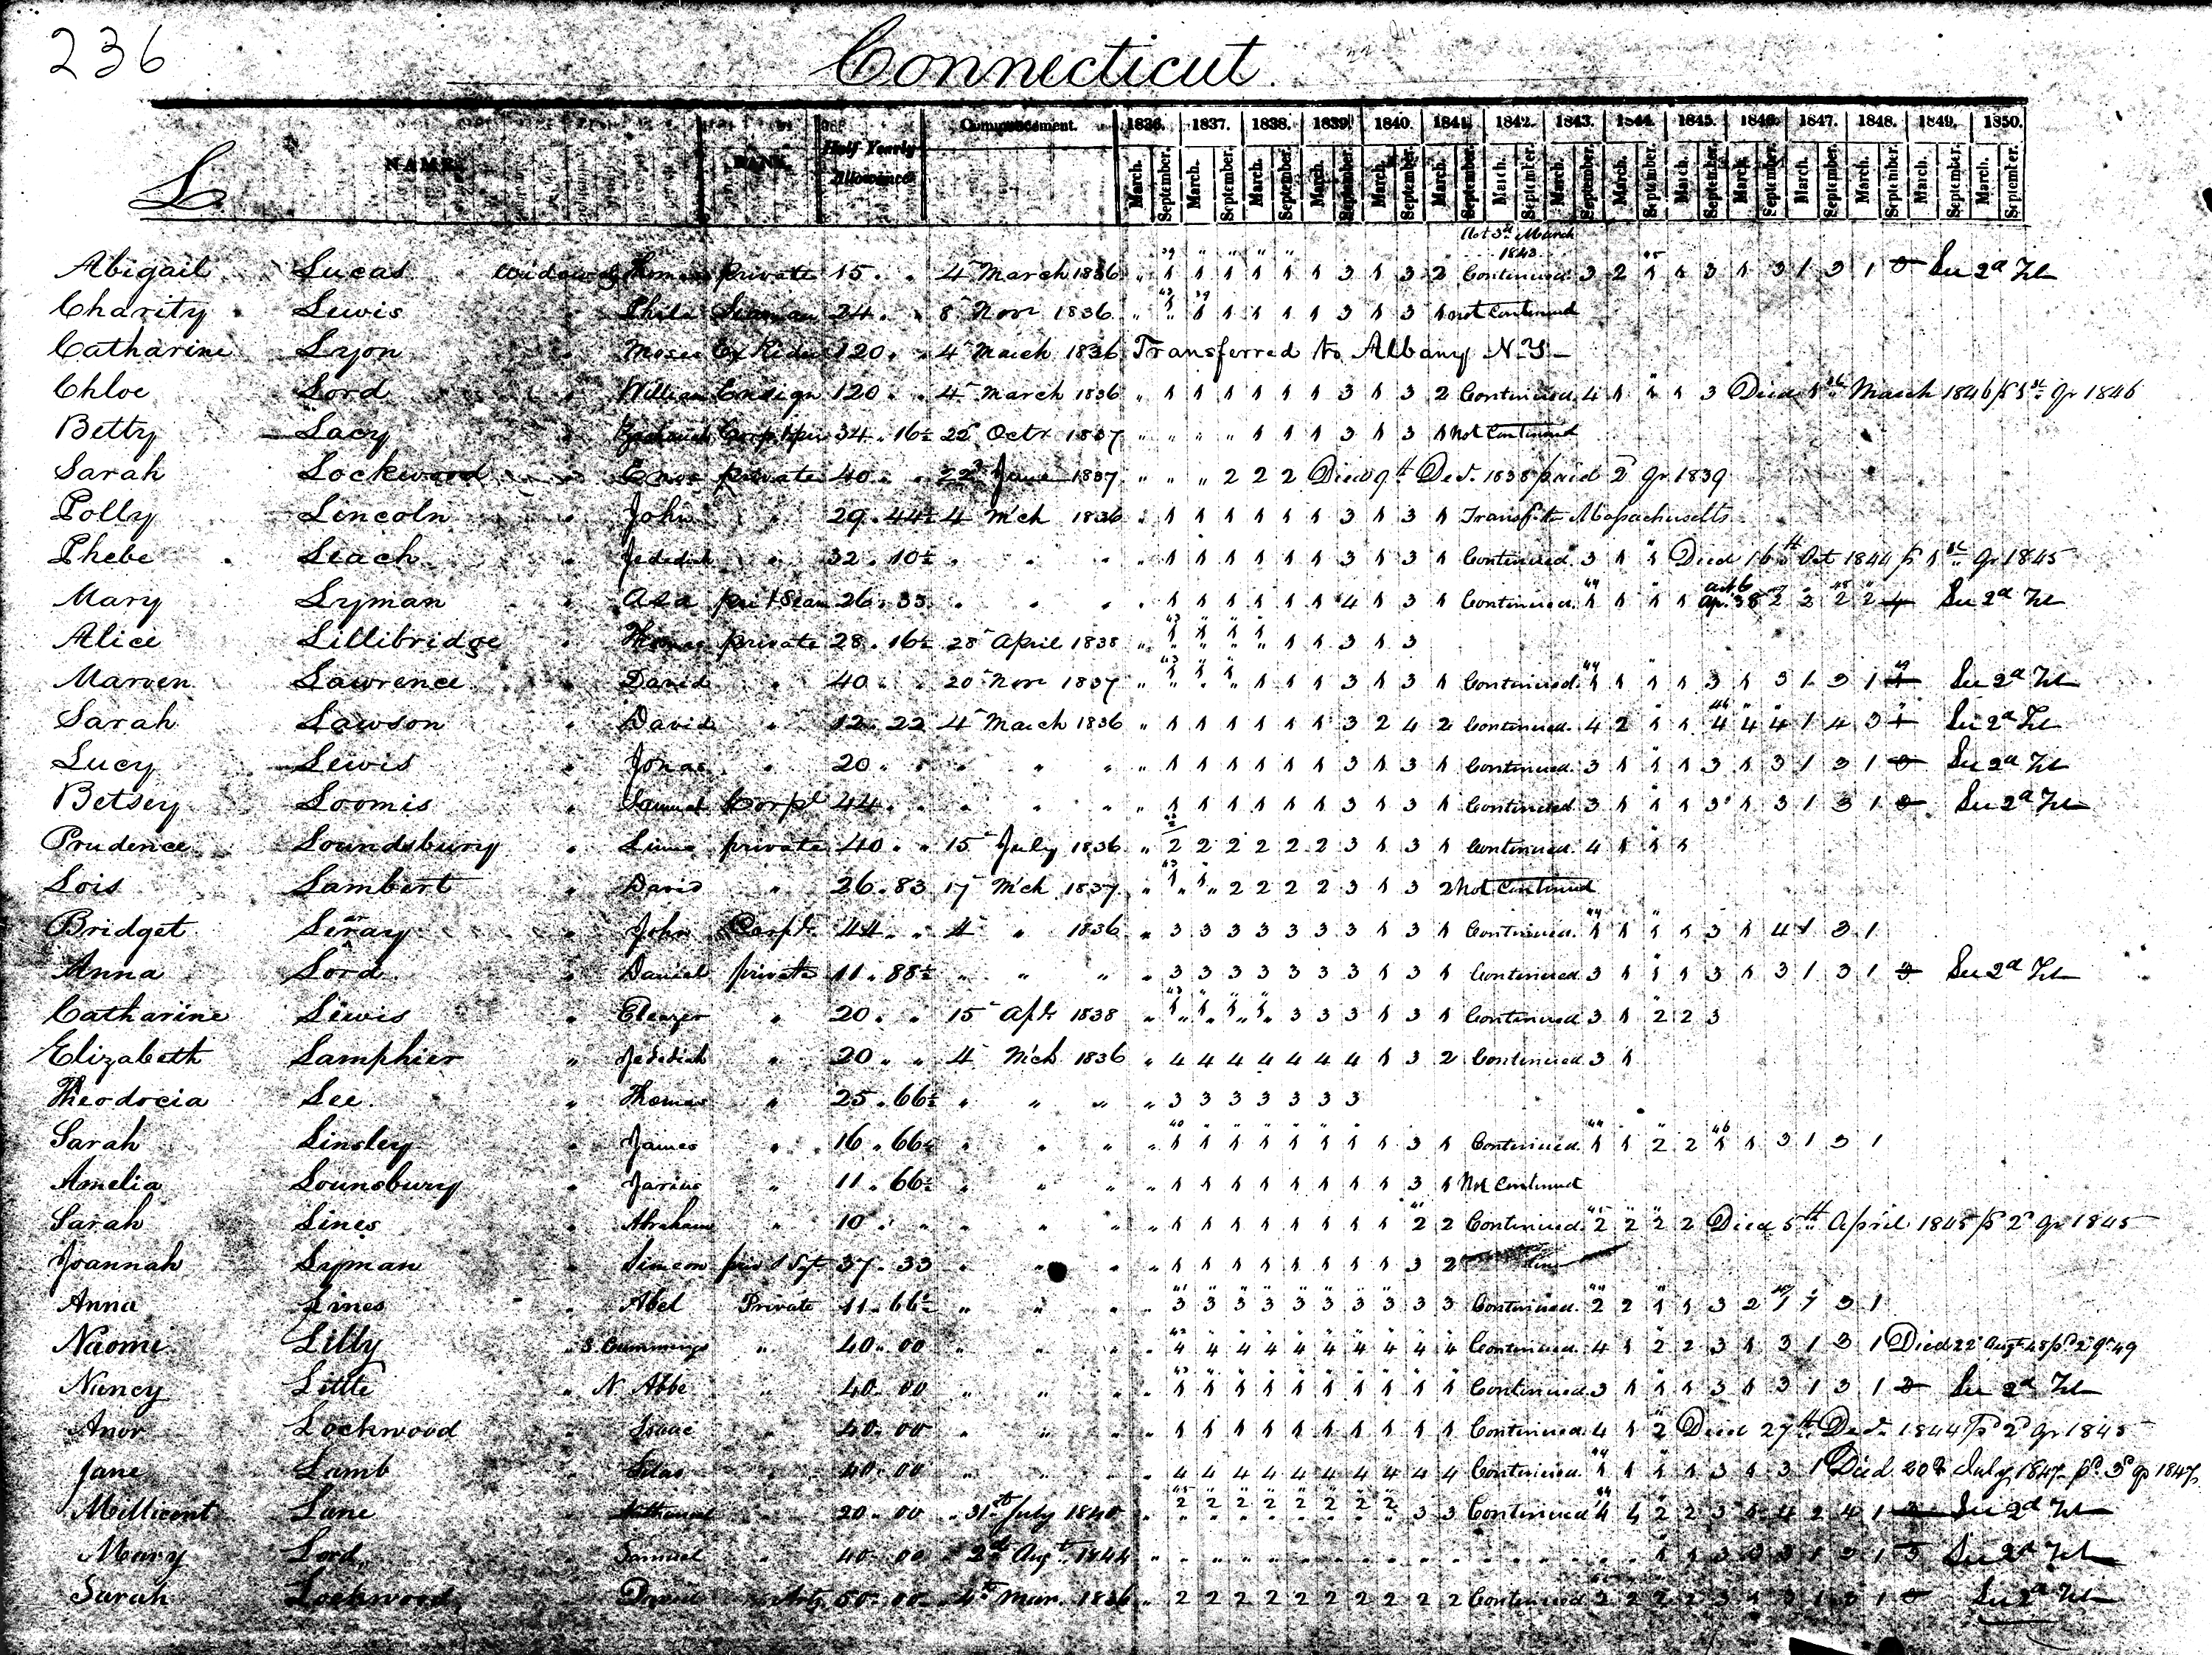 236
Connecticut
L NAME. RANK. Half Yearly Allowance Commencement. 1836. 1837. 1838. 1839. 1840. 1841. 1842. 1843. 1844. 1845. 1846. 1847. 1848. 1849. 1850.
March. September. March. September. March. September. March. September. March. September. March. September. March. September. March. September. March. September. March. September. March. September. March. September. March. September. March. September. March. September.
Act 3d March
1843
Abigail Lucas Widow of Thomas private 15 " 4 March 1836 " 1 1 1 1 1 1 3 1 3 2 Continued 3 2 1 1 3 1 3 1 3 1 3 See 2d Vol
Charity Lewis " Seaman 24 " 8 Novr 1836 1 1 1 1 1 3 1 3 1 not Continued
Catharine Lyon " Moses 120 " 4 March 1836 Transferred to Albany N.Y.
Chloe Lord " William Ensign 120 " 4 March 1836 " 1 1 1 1 1 1 3 1 3 2 Continued 4 1 1 1 3 Died 1st March 1846 1st qr 1846
Betty Lacy " 34.16½ 25 Octr 1837 " " " " 1 1 1 3 1 3 1 Not Continued
Sarah Lockwood " Enos private 40 " 22d June 1837 " " " 2 2 2 Died 9th Decr. 1838 paid 2 qr 1839
Polly Lincoln " John " 29.44½ 4 Mch 1836 " 1 1 1 1 1 1 3 1 3 1 Transf. to Massachusetts
Phebe Leach " Jedediah " 32.10½ " " " 1 1 1 1 1 1 3 1 3 1 Continued 3 1 1 Died 16th Oct 1844 1st qr 1845
Mary Lyman " Asa 26.33 " " " 1 1 1 1 1 1 4 1 3 1 Continued 1 1 1 1 2 2 2 2 4 See 2d Vol
Alice Lillibridge " Thomas private 28.16½ 28 April 1838 " 1 1 1 1 1 1 3 1 3
Marven Lawrence " David " 40 " 20 Novr 1837 " 1 1 1 1 1 1 3 1 3 1 Continued 1 1 1 1 3 1 3 1 3 1 1 See 2d Vol
Sarah Lawson " David " 12.22 4 March 1836 " 1 1 1 1 1 1 3 2 4 2 Continued 4 2 1 1 4 4 4 1 4 3 1 See 2d Vol
Lucy Lewis " Jonas " 20 " " " " 1 1 1 1 1 1 3 1 3 1 Continued 3 1 1 1 3 1 3 1 3 1 3 See 2d Vol
Betsey Loomis " Samuel Corpl 44 " " " " 1 1 1 1 1 1 3 1 3 1 Continued 3 1 1 1 3 1 3 1 3 1 3 See 2d Vol
Prudence Loundsbury " private 40 " 15 July 1836 " 2 2 2 2 2 2 3 1 3 1 Continued 4 1 1 1
Lois Lambert " David " 26.83 17 Mch 1837 " 1 1 2 2 2 2 3 1 3 2 Not Continued
Bridget Leray " John Corpl. 44 " 4 " 1836 " 3 3 3 3 3 3 3 1 3 1 Continued 1 1 1 1 3 1 4 1 3 1
Anna Lord " Daniel private 11.88½ " " " " 3 3 3 3 3 3 3 1 3 1 Continued 3 1 1 1 3 1 3 1 3 1 3 See 2d Vol
Catharine Lewis " Eleazer " 20 " 15 Apl 1838 " 1 1 1 1 3 3 3 1 3 1 Continued 3 1 2 2 3
Elizabeth Lamphier " Jedediah " 20 " 4 Mch 1836 " 4 4 4 4 4 4 4 1 3 2 Continued 3 1
Theodocia Lee " Thomas " 25.66½ " " " " 3 3 3 3 3 3 3
Sarah Linsley " James " 16.66½ " " " " 1 1 1 1 1 1 1 1 3 1 Continued 1 1 2 2 1 1 3 1 3 1
Amelia Lounsbury " Jarius " 11.66½ " " " " 1 1 1 1 1 1 1 1 3 1 Not Continued
Sarah Lines " Abraham " 10 " " " " 1 1 1 1 1 1 1 1 2 2 Continued 2 2 2 2 Died 5th April 1845 2 qr 1845
Joannah Lyman " Simeon 37.33 " " " " 1 1 1 1 1 1 1 1 3 2
Anna Lines " Abel Private 11.66½ " " " " 3 3 3 3 3 3 3 3 3 3 Continued 2 2 1 1 3 2 1 1 3 1
Naomi Lilly " S Cummings " 40.00 " " " 4 4 4 4 4 4 4 4 4 4 Continued 4 1 2 2 3 1 3 1 3 1 Died 22 Augt 48 pd 2 qr 49
Nancy Little " N Abbe " 40.00 " " " " 1 1 1 1 1 1 1 1 1 1 Continued 3 1 1 1 3 1 3 1 3 1 3 See 2d Vol
Anor Lockwood " Isaac " 40.00 " " " 1 1 1 1 1 1 1 1 1 1 Continued 4 1 2 Died 27th Decr 1844 2 qr 1845
Jane Lamb " Silas " 40.00 " " " 4 4 4 4 4 4 4 4 4 4 Continued 1 1 1 1 3 1 3 1 Died 20th July 1847 pd 3d qr 1847
Millicent Lane " Nathaniel " 20.00 31st July 1840 2 2 2 2 2 2 2 2 3 3 Continued 4 4 2 2 3 1 4 2 4 1 2 See 2d Vol
Mary Lord " Samuel " 40.00 2d Augt 1844 1 1 3 3 3 1 3 1 3 See 2d Vol
Sarah Lockwood " 50.00 4th Mar. 1836 " 2 2 2 2 2 2 2 2 2 2 Continued 2 2 2 2 3 1 3 1 3 1 3 See 2d Vol